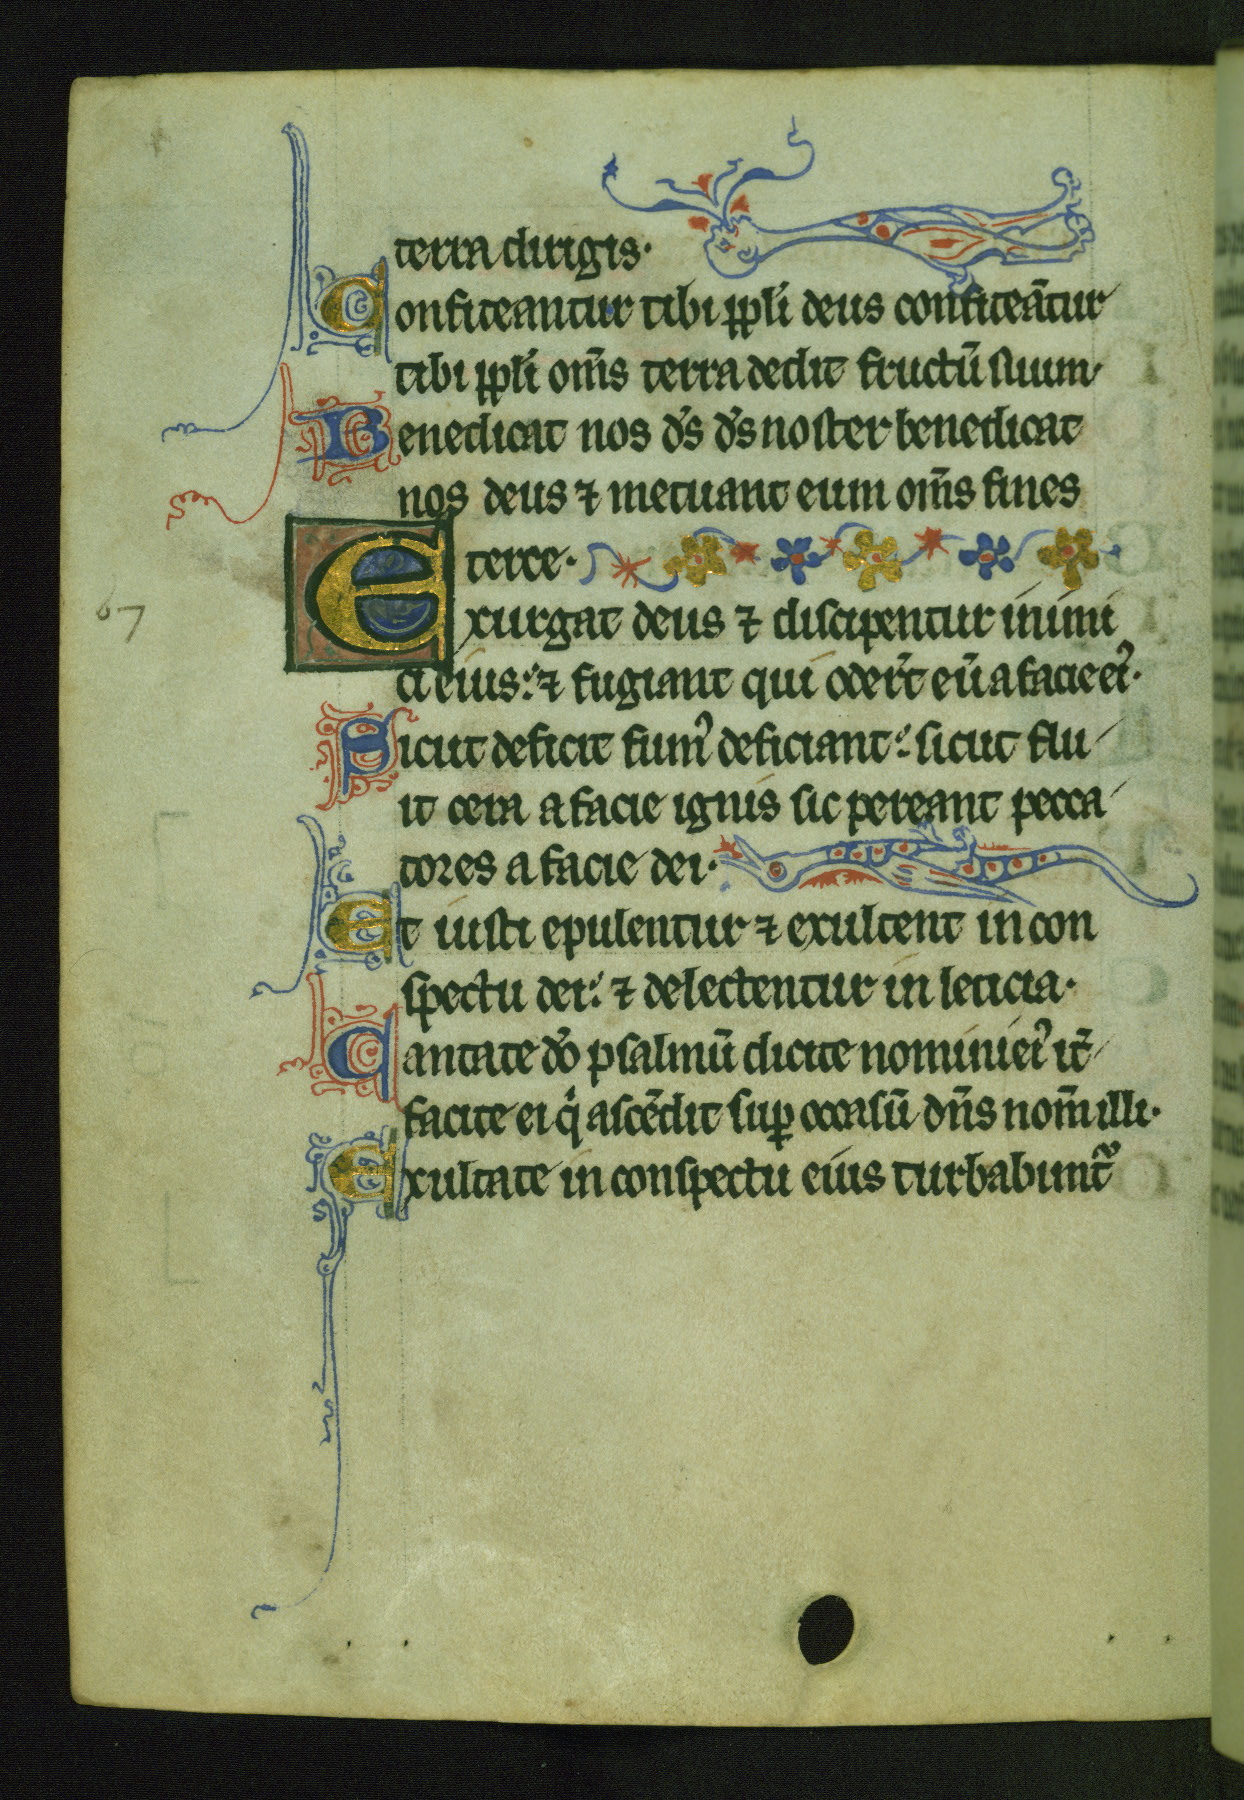 terra dirigis·
Confiteantur tibi pp̄li deus confiteātur
tibi pp̄li om̄s terra dedit fructū suum·
Benedicat nos d̄s d̄s noster benedicat
nos deus ⁊ metuant eum om̄s fines
terre·
Exurgat deus ⁊ dissipentur inimi
ci eius: ⁊ fugiant qui oder̄t eū a facie ei᾽·
Sicut deficit fum᾽ deficiant: sicut flu
it cera a facie ignis sic pereant pecca
tores a facie dei·
Et iusti epulentur ⁊ exultent in con
spectu dei: ⁊ delectentur in leticia·
Cantate d̄o psalmū dicite nomini ei᾽ it̄
facite ei qͥ ascēdit suꝑ occasū dn̄s nom̄ illi·
Exultate in conspectu eius turbabunt᷑
67